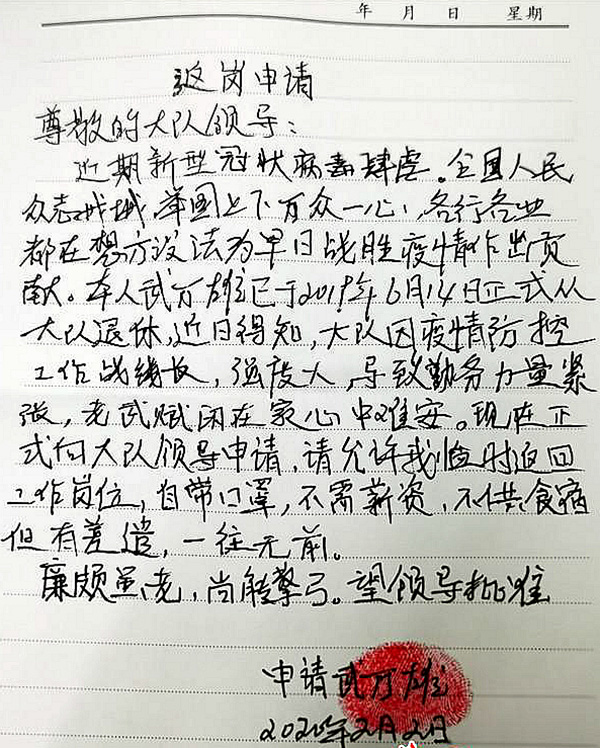 年 月 日 星期
返岗申请
尊敬的大队领导:
近期新型冠状病毒肆虐。全国人民
众志成城,举国上下万众一心,各行各业
都在想方设法为早日战胜疫情作出贡
献。本人武万雄已于2019年6月14日正式从
大队退休,近日得知,大队因疫情防控
工作战线长,强度大,导致勤务力量紧
张,老武赋闲在家心中难安。现在正
式向大队领导申请,请允许我临时返回
工作岗位,自带口罩,不需薪资,不供食宿
但有差遣,一往无前。
廉颇虽老,尚能擎弓。望领导批准
申请武万雄
2020年2月2日